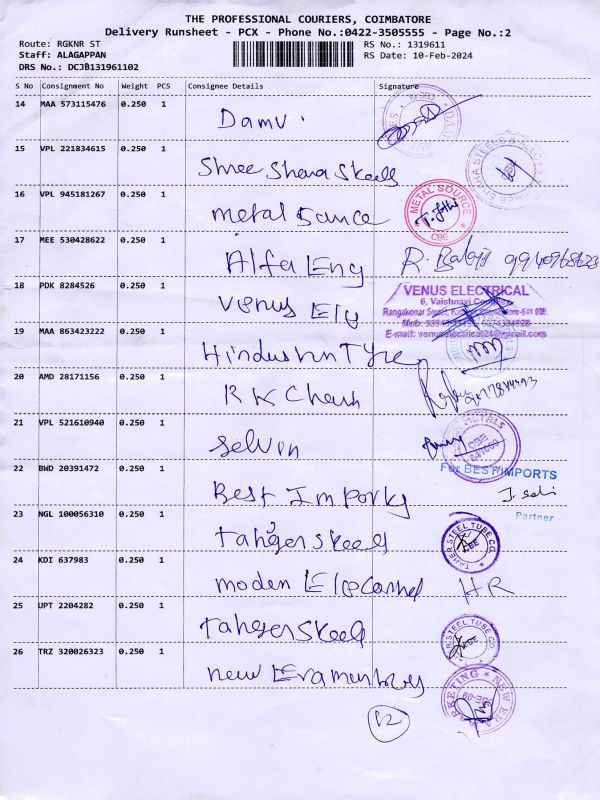 THE PROFESSIONAL COURIERS, COIMBATORE
Delivery Runsheet - PCX - Phone No.:0422-3505555 - Page No.:2
Route: RGKNR ST RS No.: 1319611
Staff: ALAGAPPAN RS Date: 10-Feb-2024
DRS No.: DCJB131961102
S No Consignment No Weight PCS Consignee Details Signature
14 MAA 573115476 0.250 1 Damu.
15 VPL 221834615 0.250 1 Shree Shara Skeels
16 VPL 945181267 0.250 1 metal Source METAL SOURCE CBE
17 MEE 530428622 0.250 1 Alfa Eng R. Balaji
18 PDK 8284526 0.250 1 Venus Ele VENUS ELECTRICAL
6, Vaishnavi
19 MAA 863423222 0.250 1 Hindustun Tyre
20 AMD 28171156 0.250 1 R K Chain
21 VPL 521610940 0.250 1 Selvin METALS CBE
22 BWD 20391472 0.250 1 Best Imports For BEST IMPORTS
Partner
23 NGL 100056310 0.250 1 taherskeels TAHER STEEL TUBE CO. CBE
24 KDI 637983 0.250 1 moden Elecannel HR
25 UPT 2204282 0.250 1 taherskeels R STEEL TUBE CO.
26 TRZ 320026323 0.250 1 new Era markeys NEW ERA
12